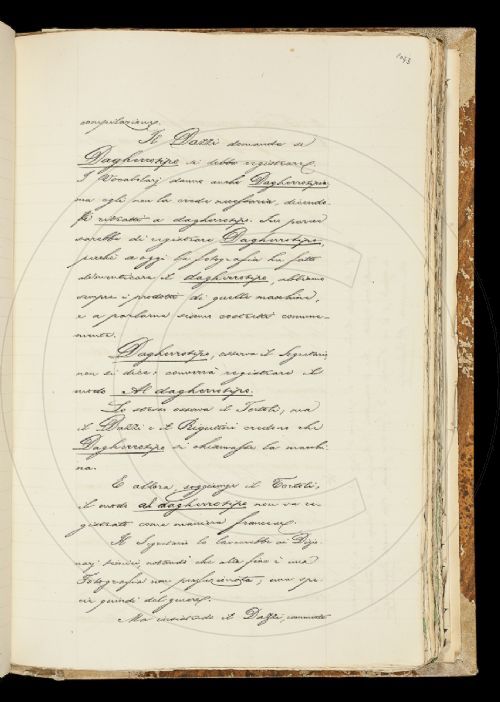 1093
compilazione.
Il Dazzi domanda se
Dagherrotipo si debba registrare.
I Vocabolarj danno anche Dagherrotipia
ma egli non la crede necessaria, dicendo
si ritratti a dagherrotipo. Suo parere
sarebbe di registrare Dagherrotipo,
perchè se oggi la fotografia ha fatto
dimenticare il dagherrotipo, abbiamo
sempre i prodotti di quella macchina,
e a parlarne siamo costretti comune-
mente.
Dagherrotipo, osserva il Segretario,
non si dice; converrà registrare il
modo Al dagherrotipo.
Lo stesso osserva il Tortoli, ma
il Dazzi e il Rigutini credono che
Dagherrotipo si chiamasse la macchi-
na.
E allora, soggiunge il Tortoli,
il modo al dagherrotipo non va re-
gistrato come maniera francese.
Il Segretario la lascerebbe ai Dizio-
narj tecnici, notando che alla fine è una
Fotografia non perfezionata, una spe-
cie quindi del genere.
Ma insistendo il Dazzi,